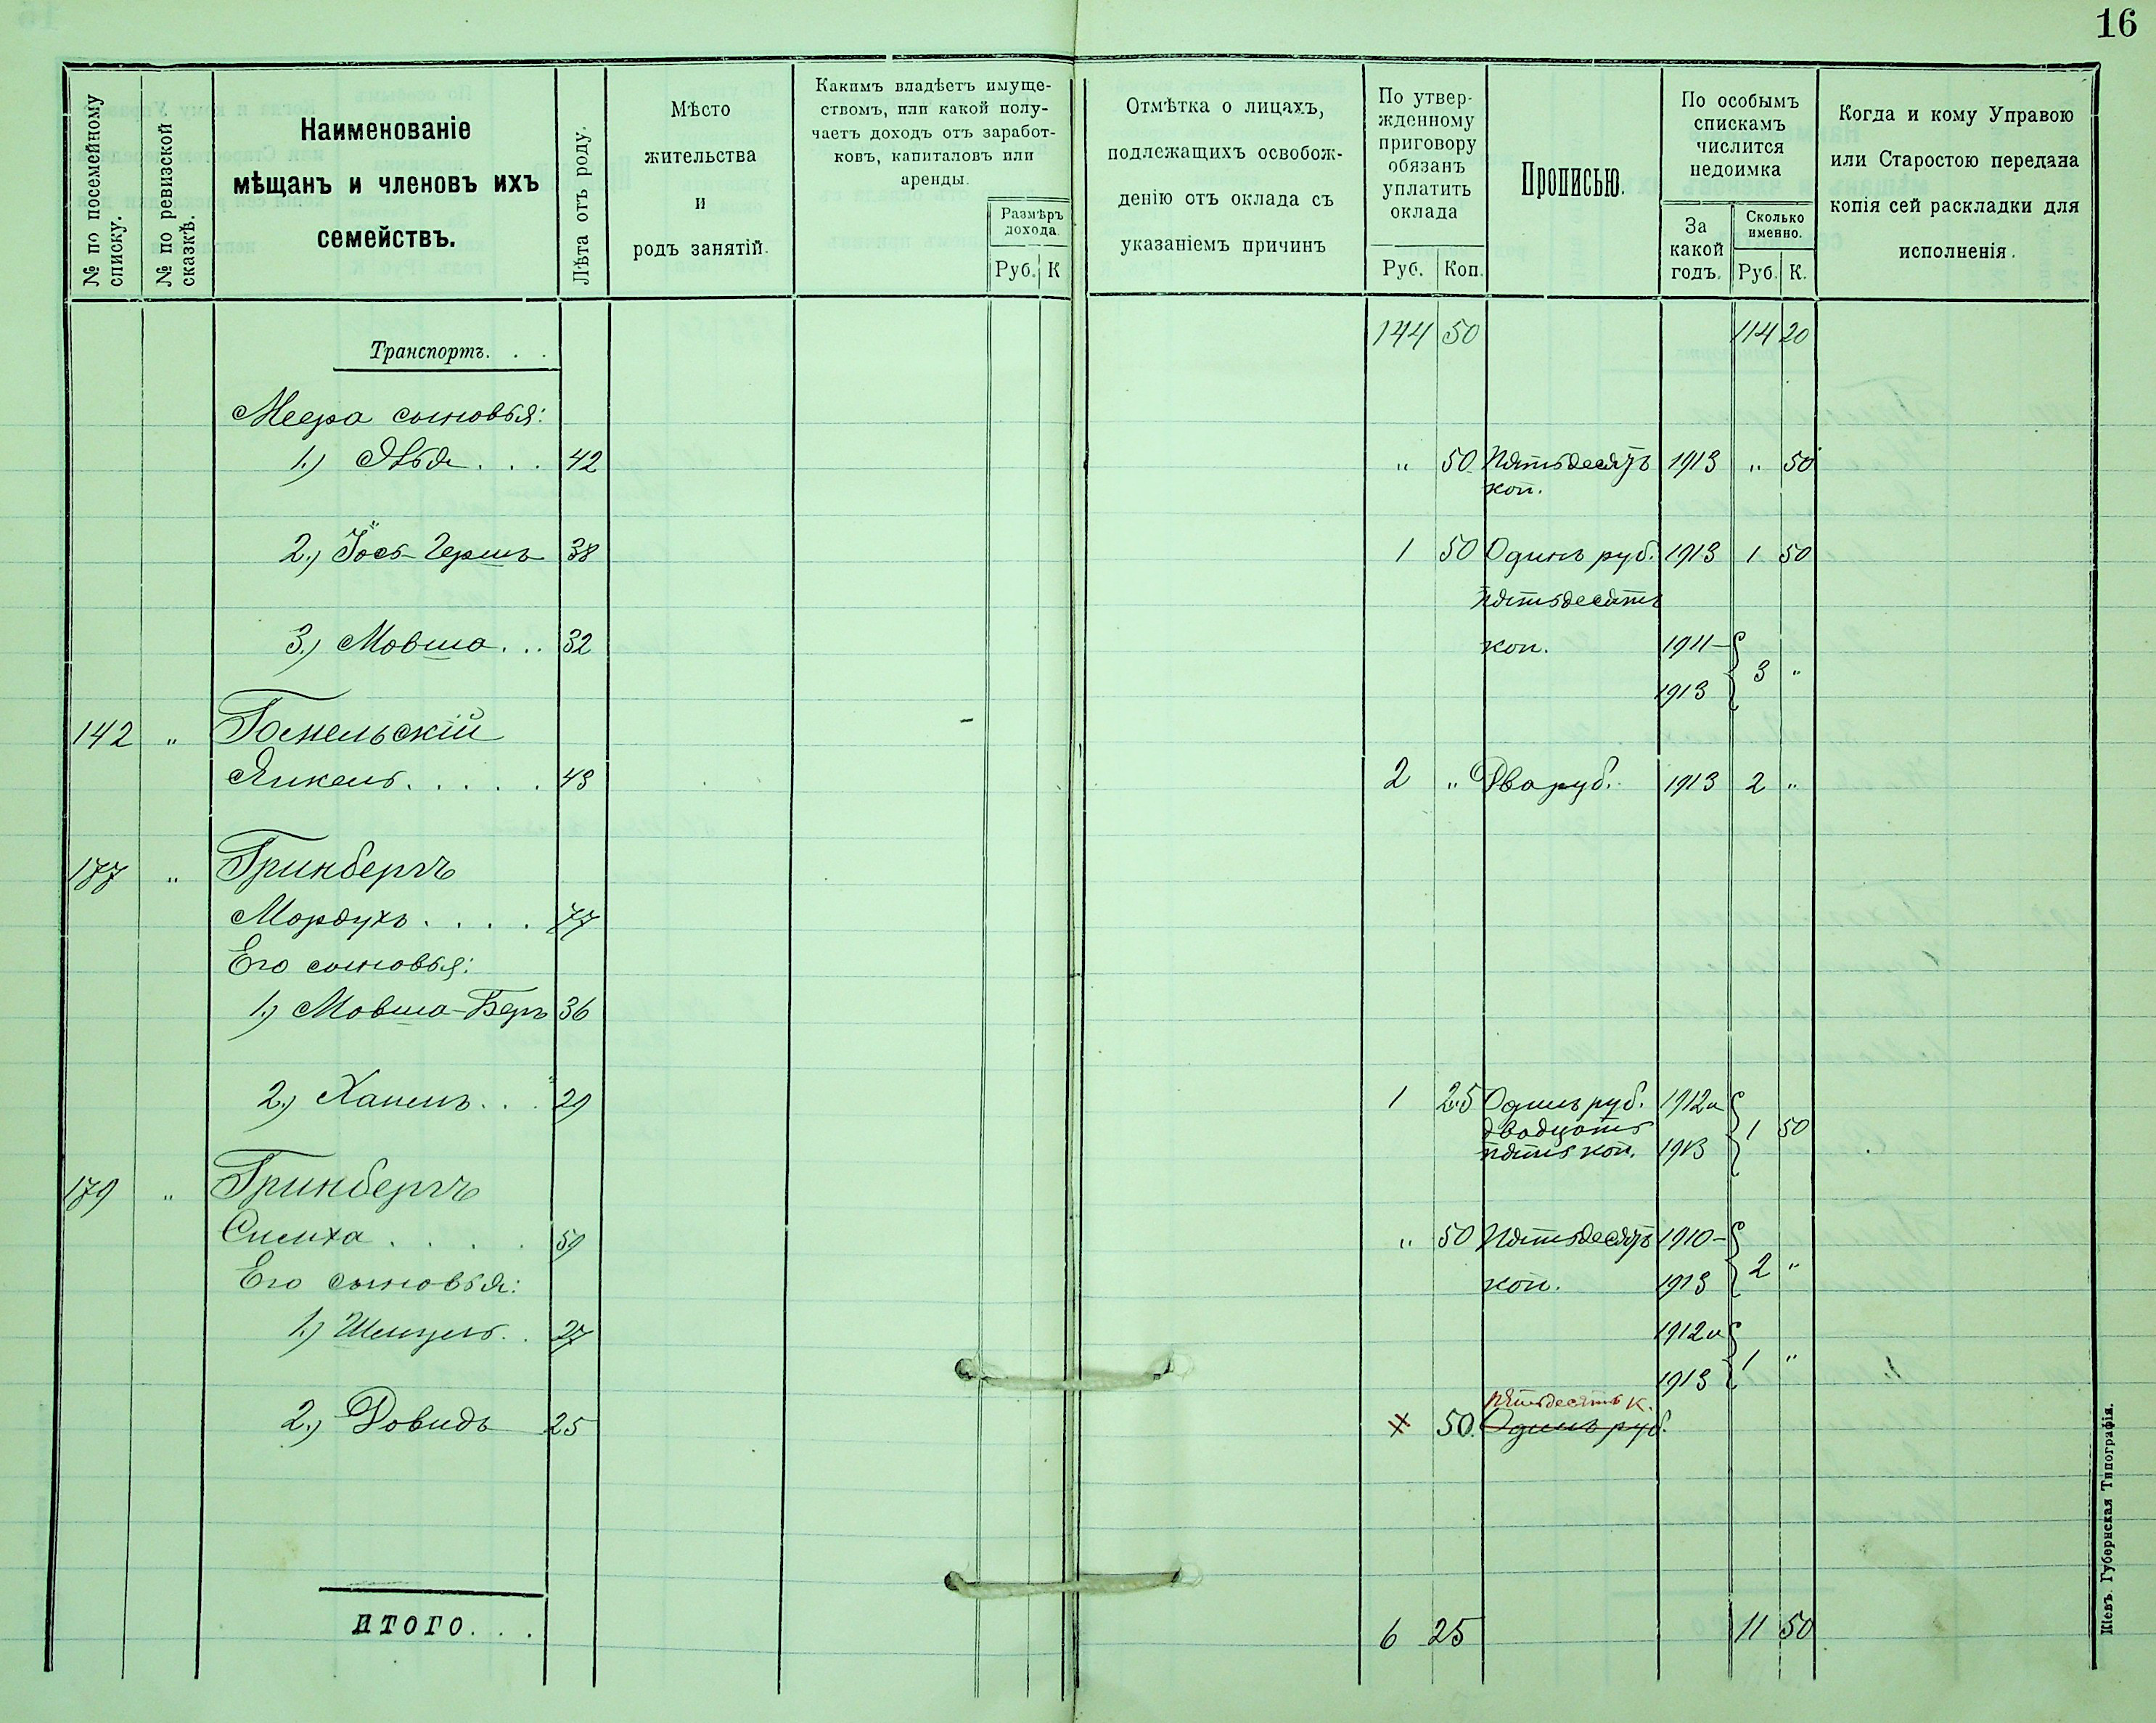 16
№ по посемейному списку.
№ по ревизской сказкѣ.
Наименованіе
мѣщанъ и членовъ ихъ
семействъ.
Лѣта отъ роду.
Мѣсто
жительства
и
родъ занятій.
Какимъ владѣетъ имуще-
ствомъ, или какой полу-
чаетъ доходъ отъ заработ-
ковъ, капиталовъ или
аренды.
Размѣръ
дохода.
Руб. К
Отмѣтка о лицахъ,
подлежащихъ освобож-
денію отъ оклада съ
указаніемъ причинъ
По утвер-
жденному
приговору
обязанъ
уплатить
оклада
Руб. Коп.
Прописью.
По особымъ
спискамъ
числится
недоимка
За
какой
годъ.
Сколько
именно.
Руб. К.
Когда и кому Управою
или Старостою передана
копія сей раскладки для
исполненія.
Транспортъ. . . 144 50 114 20
Меера сыновья:
1.) . . . 42 " 50 Пятьдесятъ 1913 " 50
коп.
2.) Іось-Гершъ 38 1 50 Одинъ руб. 1913 1 50
пятьдесятъ
3.) Мовша . . . 32 коп. 1911- 3 "
1913
142 " Гомельскій
Янкель . . . . . 43 2 " Два руб. 1913 2 "
177 " Гринбергъ
Мордухъ . . . . 77
Его сыновья:
1.) Мовша-Беръ 36
2.) . . . 29 1 25 Одинъ руб. 1912 и 1 50
двадцать
пять коп. 1913
179 " Гринбергъ
Симха . . . . 59 " 50 Пятьдесятъ 1910- 2 "
Его сыновья: коп. 1913
1.) . . 27 1912 и 1 "
1913
пятьдесятъ к.
2.) Довидъ 25 50. Одинъ руб.
ИТОГО. . . 6 25 11 50
Кіевъ. Губернская Типографія.